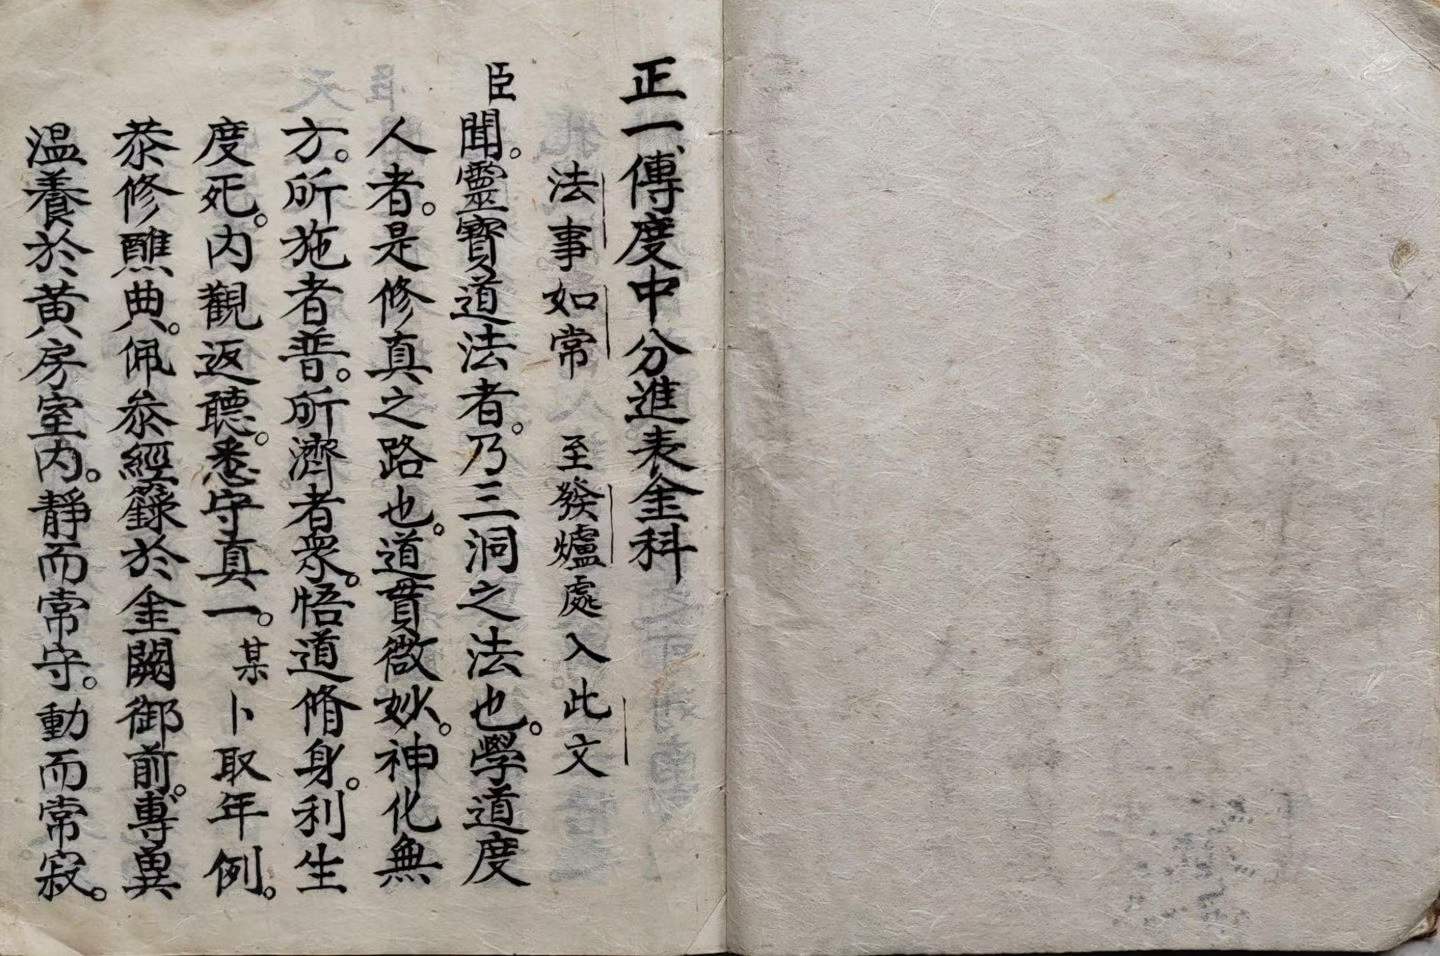 正一傳度中分進表金科
法事如常　至發爐處入此文
臣聞。靈寶道法者。乃三洞之法也。學道度
人者。是修真之路也。道貫微妙。神化無
方。所施者普。所濟者衆。悟道脩身。利生
度死。内觀返聽。悉守真一。某卜取年例。
恭修醮典。佩奏經籙於金闕御前。專冀
温養於黃房室内。靜而常守。動而常寂。